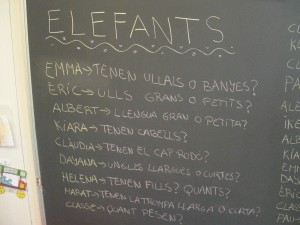 ELEFANTS
EMMA→TENEN ULLALS O BANYES?
ERIC→ULLS GRANS O PETITS?
ALBERT→LLENGUA GRAN O PETITA?
KIARA→TENEN CABELLS?
CLÀUDIA→TENEN EL CAP RODÓ?
DAYANA→UNGLES LLARGUES O CURTES?
HELENA→TENEN FILLS? QUANTS?
MARAT→TENEN LA TROMPA LLARGA O CURTA?
CLASSE→QUANT PESEN?